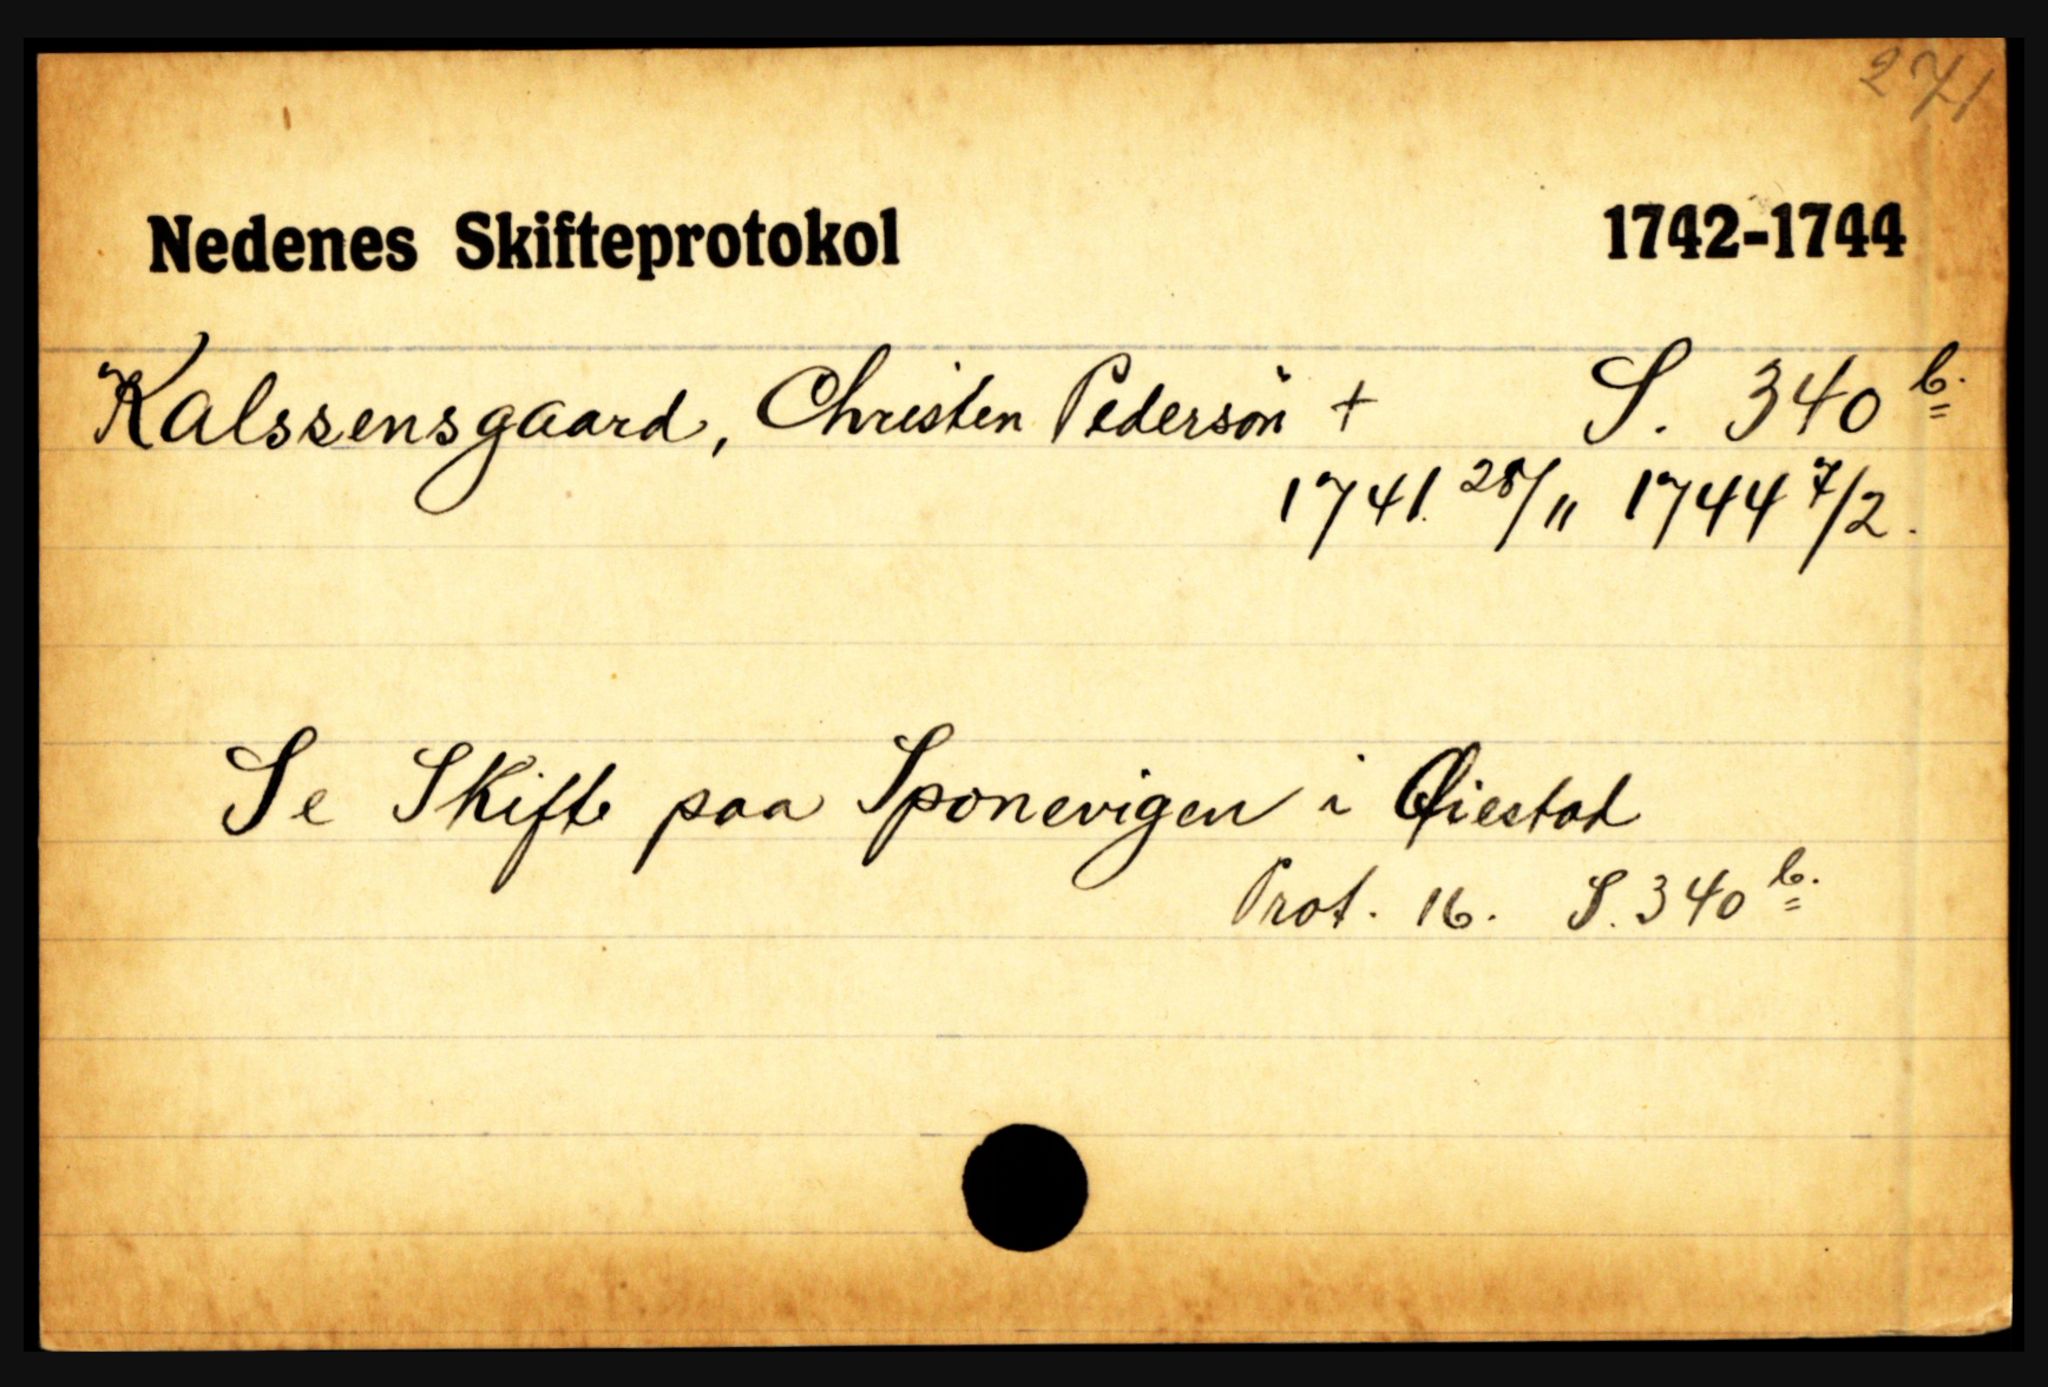 271
Nedenes Skifteprotokol 1742-1744
Kalssensgaard, Christen Pedersøn + S. 340 b.
1741. 28/11 1744 7/2.
Se Skifte paa Sponevigen i Øiestad
Prot. 16. S. 340 b.